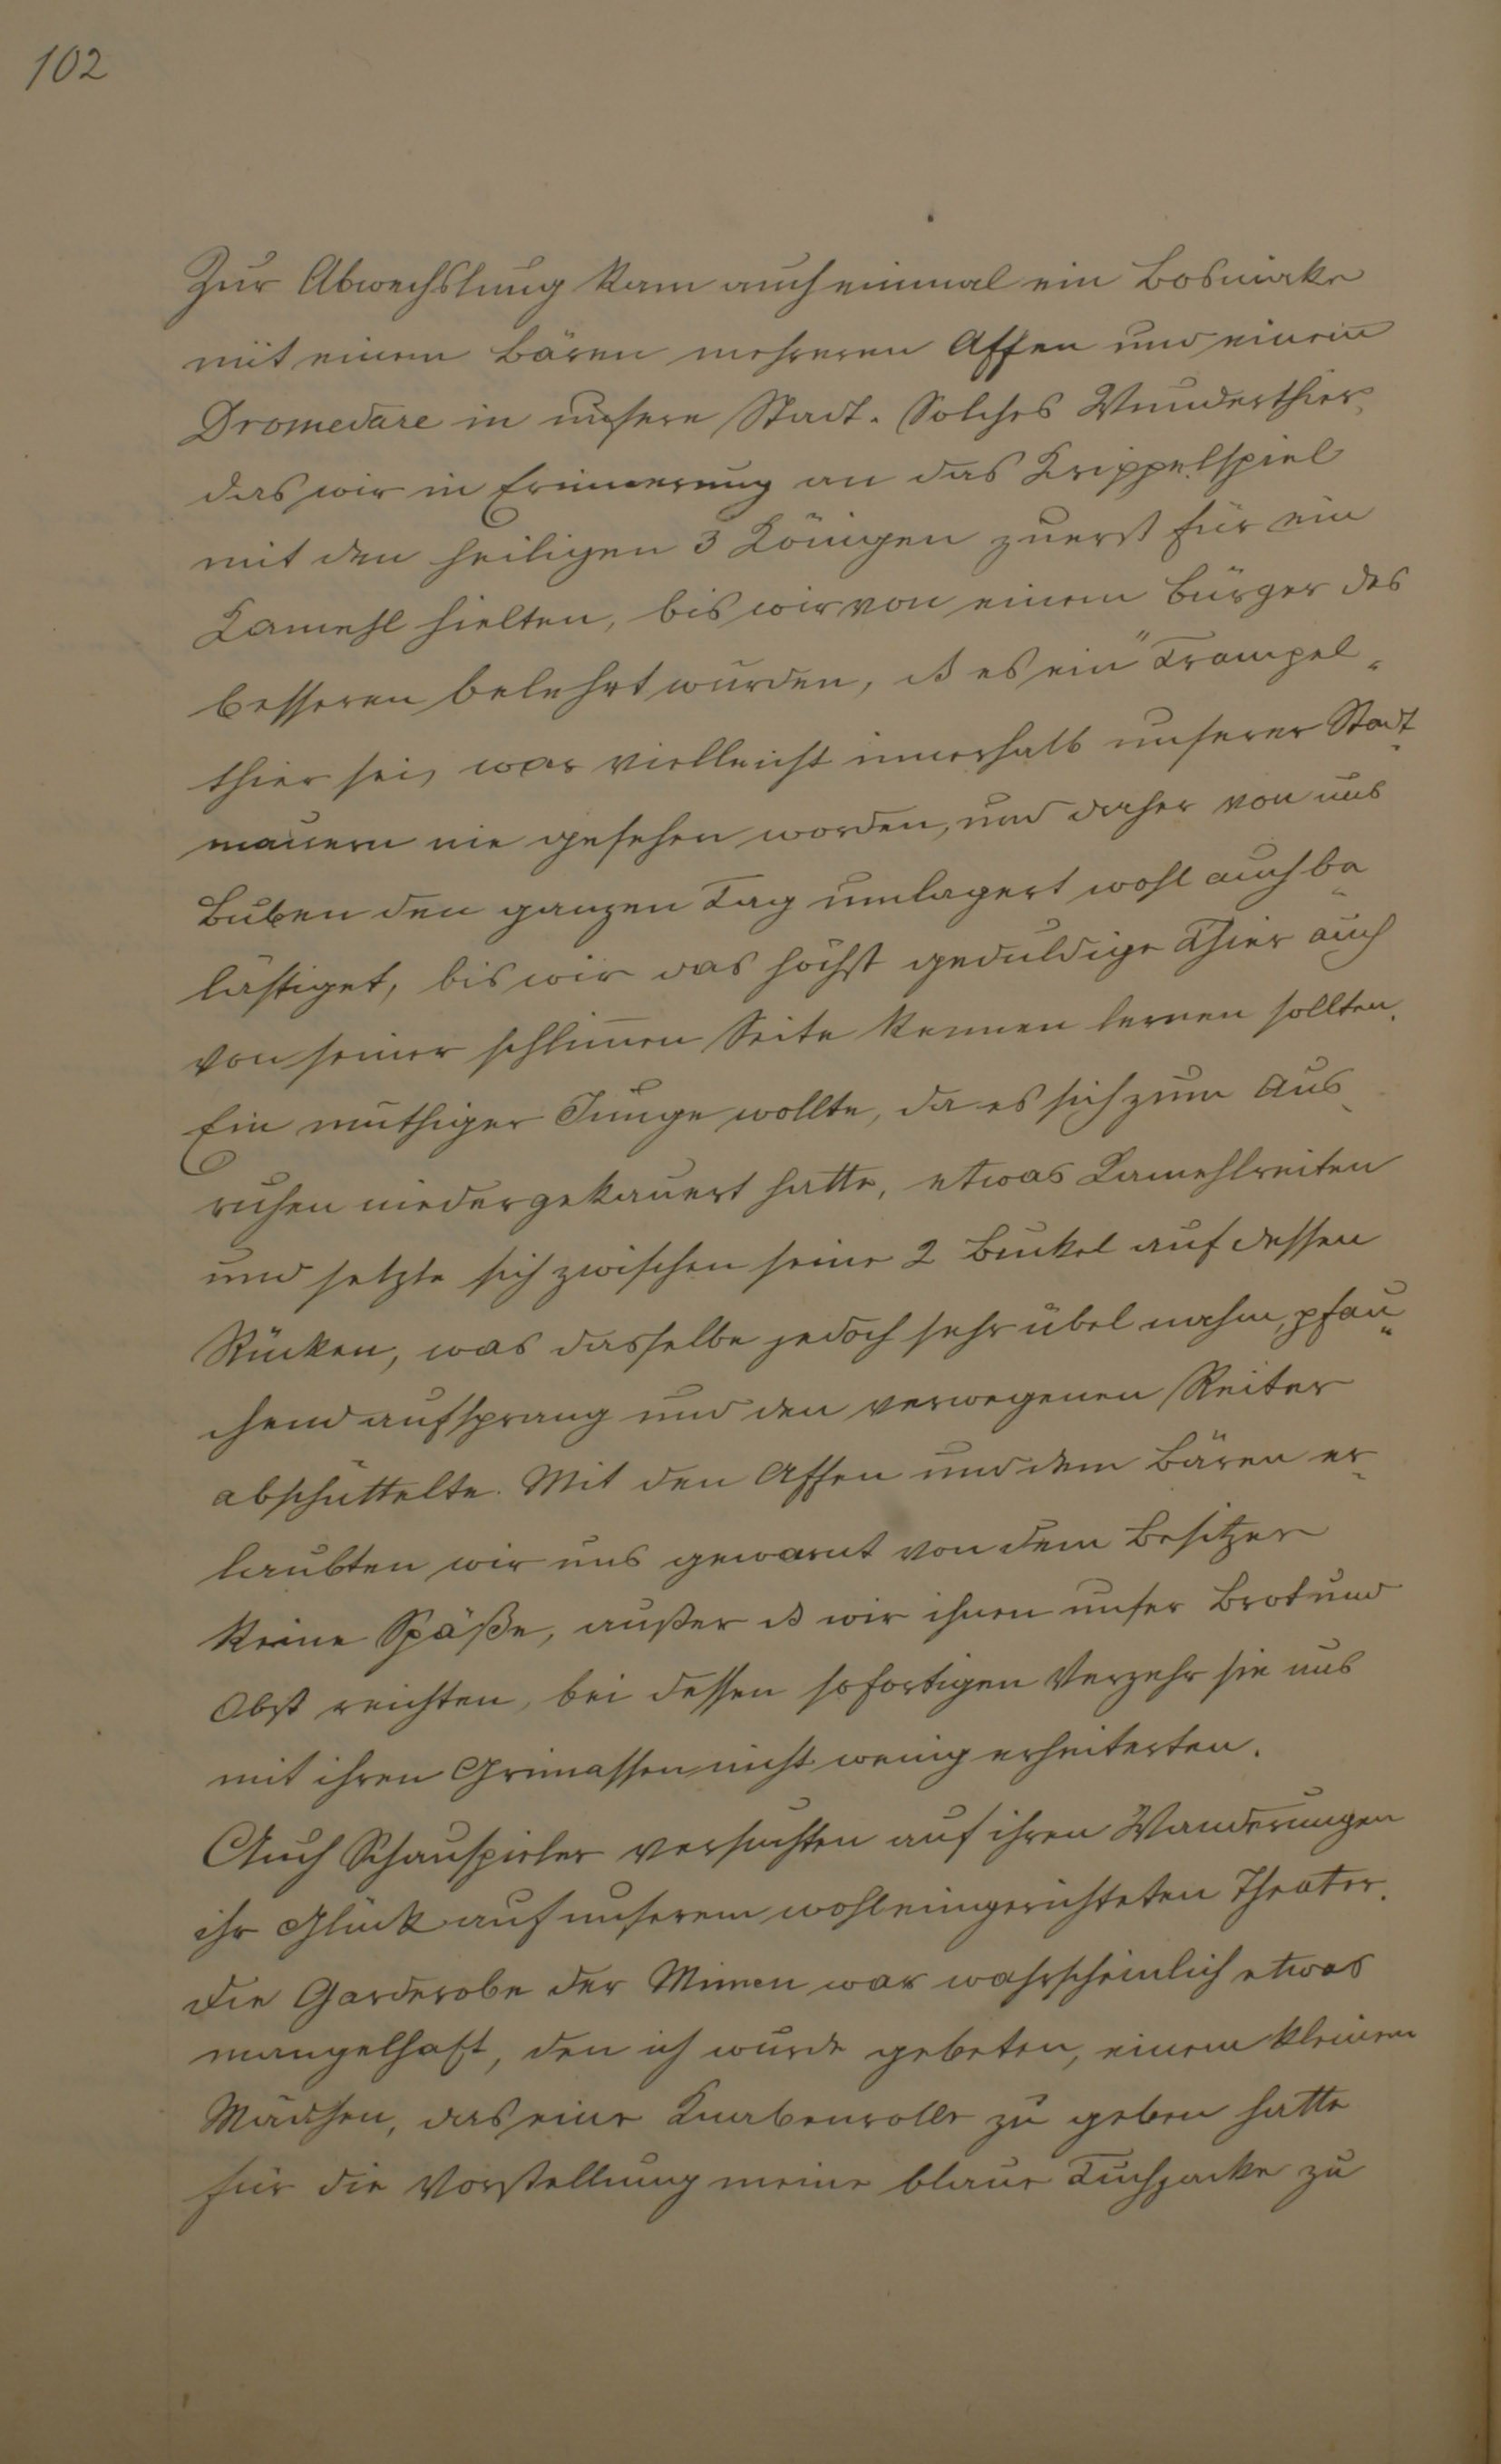 102
Zur Abwechslung kam auch einmal ein Bosniake
mit einem Bären mehreren Affen und einem
Dromedare in unsere Stadt. Solches Wunderthier,
das wir in Erinnerung an das Krippelspiel
mit den heiligen 3 Königen zuerst für ein
Kamehl hielten, bis wir von einem Bürger des
besseren belehrt wurden, dß es ein "Trampel-
thier sei, war vielleicht innerhalb unserer Stadt-
mauern nie gesehen worden, und daher von uns
Buben den ganzen Tag umlagert wohl auch be-
lästiget, bis wir das höchst geduldige Thier auch
von seiner schlim̅en Seite kennen lernen sollten.
Ein muthiger Junge wollte, da es sich zum Aus-
ruhen niedergekauert hatte, etwas Kamehlreiten
und setzte sich zwischen seine 2 Bukel auf dessen
Rücken, was dasselbe jedoch sehr übel nahm, pfau-
chend aufsprang und den verwegenen Reiter
abschüttelte. Mit den Affen und dem Bären er-
laubten wir uns gewarnt von dem Besitzer
keine Späße, außer dß wir ihnen unser Brot und
Obst reichten, bei dessen sofortigen Verzehr sie uns
mit ihren Grimassen nicht wenig erheiterten.
Auch Schauspieler versuchten auf ihren Wanderungen
ihr Glück auf unserem wohleingerichteten Theater.
Die Garderobe der Mimen war wahrscheinlich etwas
mangelhaft, den ich wurde gebeten, einem kleinen
Mädchen, das eine Knabenrolle zu geben hatte
für die Vorstellung meine blaue Tuchjacke zu